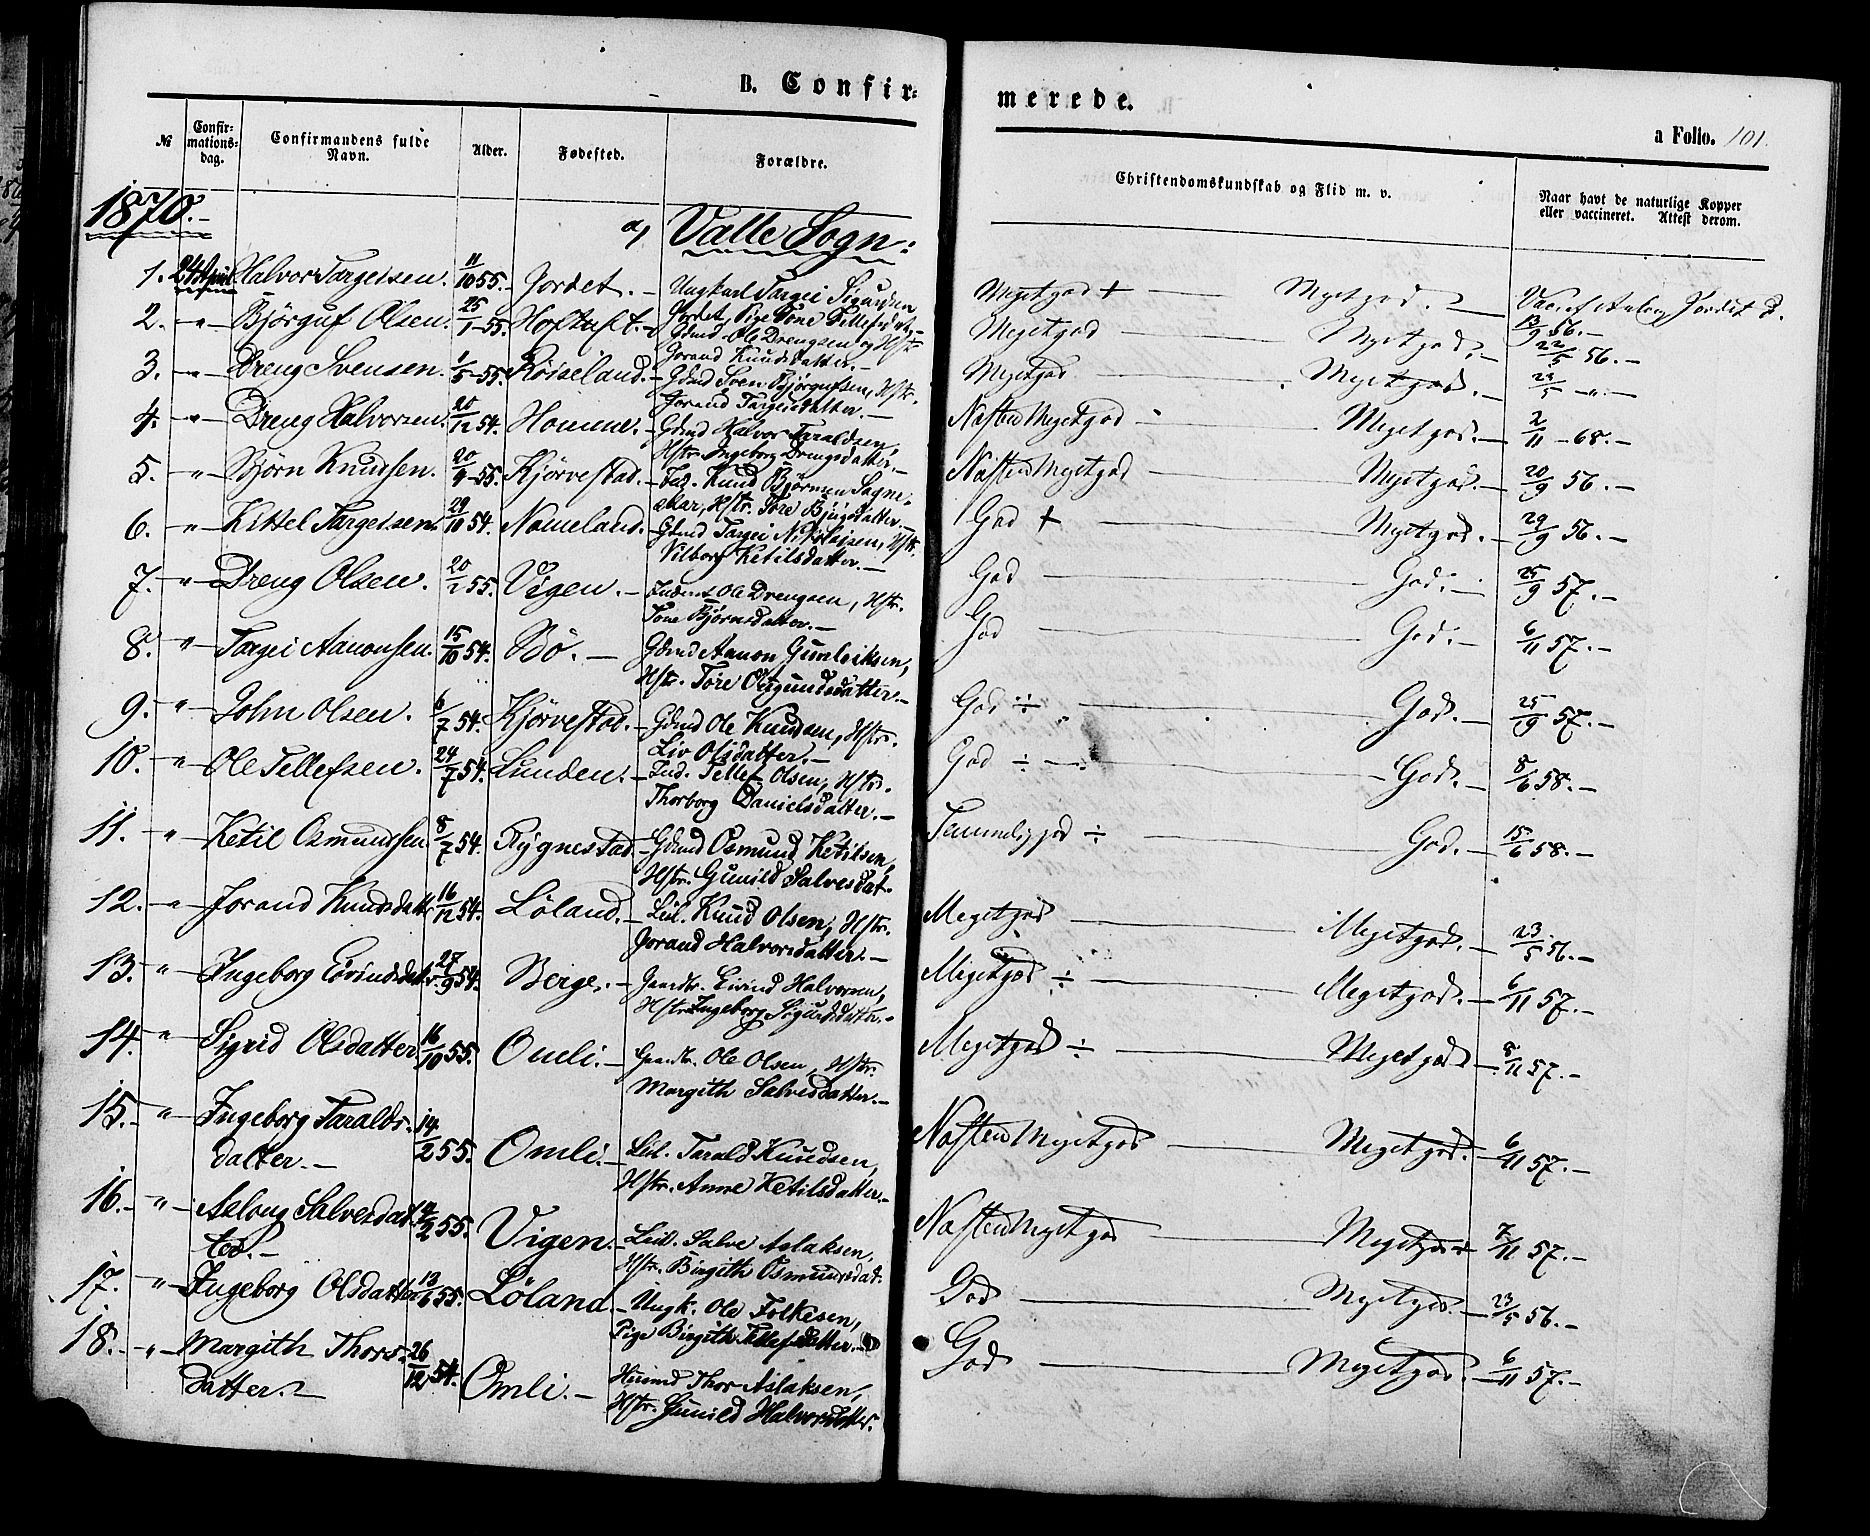 B. Confir-
merede.
a Folio. 101.
№
Confir-
mations-
dag.
Confirmandens fulde
Navn.
Alder.
Fødested.
Forældre.
Christendomskundskab og Flid m. v.
Naar havt de naturlige Kopper
eller vaccineret. Attest derom.
1870.-
a, Valle Sogn:
1. 24 April Halvor Targeisen. 11/10 55. Jordet. - Ungkarl Targei Sigurdsen Meget god + — Meget god. - Jordet
Jordet, Pige Tone Tellefsdatr. - 13/9 56. -
2. -"- Bjørguf Olsen. 25/1 -55. Hoftuft. - Gdmd Ole Drengsen og Hstr. Meget god — Meget god. - 22/5 56. -
Jorand Knudsdatter. -
3. -"- Dreng Svensen. 1/5 -55. Røiseland. - Gdmd Sven Bjørgufsen, Hstr. Meget god — Meget god. - 23/5 -"-
Jorand Targeisdatter. -
4. -"- Dreng Halvorsen. 20/12 54. Homme. - Gdmd Halvor Taraldsen, Næsten Meget god - Meget god. - 2/11 -68. -
Hstr. Ingeborg Drengsdatter. -
5. -"- Bjørn Knudsen. 20/9 -55. Kjørvestad. - Ind. Knud Bjørnsen Sagne- Næsten Meget god — Meget god. - 20/9 56. -
skar, Hstr. Tore Bjugsdatter. -
6. -"- Kittel Targeisen. 29/10 54. Nomeland. - Gdmd Targei Nikolaisen, Hstr. God + — Meget god. - 29/9 56. -
Vilborg Ketilsdatter. -
7. -"- Dreng Olsen. 20/2 55. Vigen. - Inderst Ole Drengsen, Hstr. God — God. - 25/9 57. -
Tone Bjørnsdatter. -
8. -"- Targei Aanonsen. 15/10 54. Bø. - Gdmd Aanon Gunleiksen, God — God. - 6/11 57. -
Hstr. Tore Osmundsdatter. -
9. -"- John Olsen. 6/7 54. Kjørvestad. - Gdmd Ole Knudsen, Hstr. God ÷ — God. - 25/9 57. -
Liv Olsdatter. -
10. -"- Ole Tellefsen. 24/7 54. Lunden. - Ind. Tellef Olsen, Hstr. God ÷ — God. - 8/6 58. -
Thorborg Danielsdatter. -
11. -"- Ketil Osmundsen. 8/7 54. Rygnestad - Gdmd Osmund Ketilsen, Temmelig god ÷ — God. - 15/6 58. -
Hstr. Gunild Salvesdat.
12. -"- Jorand Knudsdattr 16/12 54. Løland. - Leil. Knud Olsen, Hstr. Meget god — Meget god. - 23/5 56. -
Jorand Halvorsdatter. -
13. -"- Ingeborg Eivindsdatr. 27/9 54. Berge. - Gaardbr. Eivind Halvorsen, Meget god ÷ — Meget god. - 6/11 57. -
Hstr. Ingeborg Sigurdsdatter. -
14. -"- Sigrid Olsdatter 16/10 55. Omli. - Gaardbr. Ole Olsen, Hstr. Meget god ÷ — Meget god - 8/11 57. -
Margith Salvesdatter. -
15. -"- Ingeborg Taralds- 14/2 55. Omli. - Leil. Tarald Knudsen, Næsten Meget god — Meget god. - 6/11 57. -
datter. - Hstr. Anne Ketilsdatter. -
16. -"- Aslaug Salvesdat- 14/2 55. Vigen. - Leil. Salve Aslaksen, Næsten Meget god — Meget god - 7/11 57. -
ter. - Hstr. Birgith Osmundsdat.
17. -"- Ingeborg Olsdatter 13/6 55. Løland. - Ungk. Ole Folkesen, God — Meget god. - 23/5 56. -
Pige Birgith Tellefsdatter. -
18. -"- Margith Thors- 26/12 54. Omli. - Husmd Thor Aslaksen, God — Meget god. - 6/11 57. -
datter. - Hstr. Gunild Halvorsdatter.